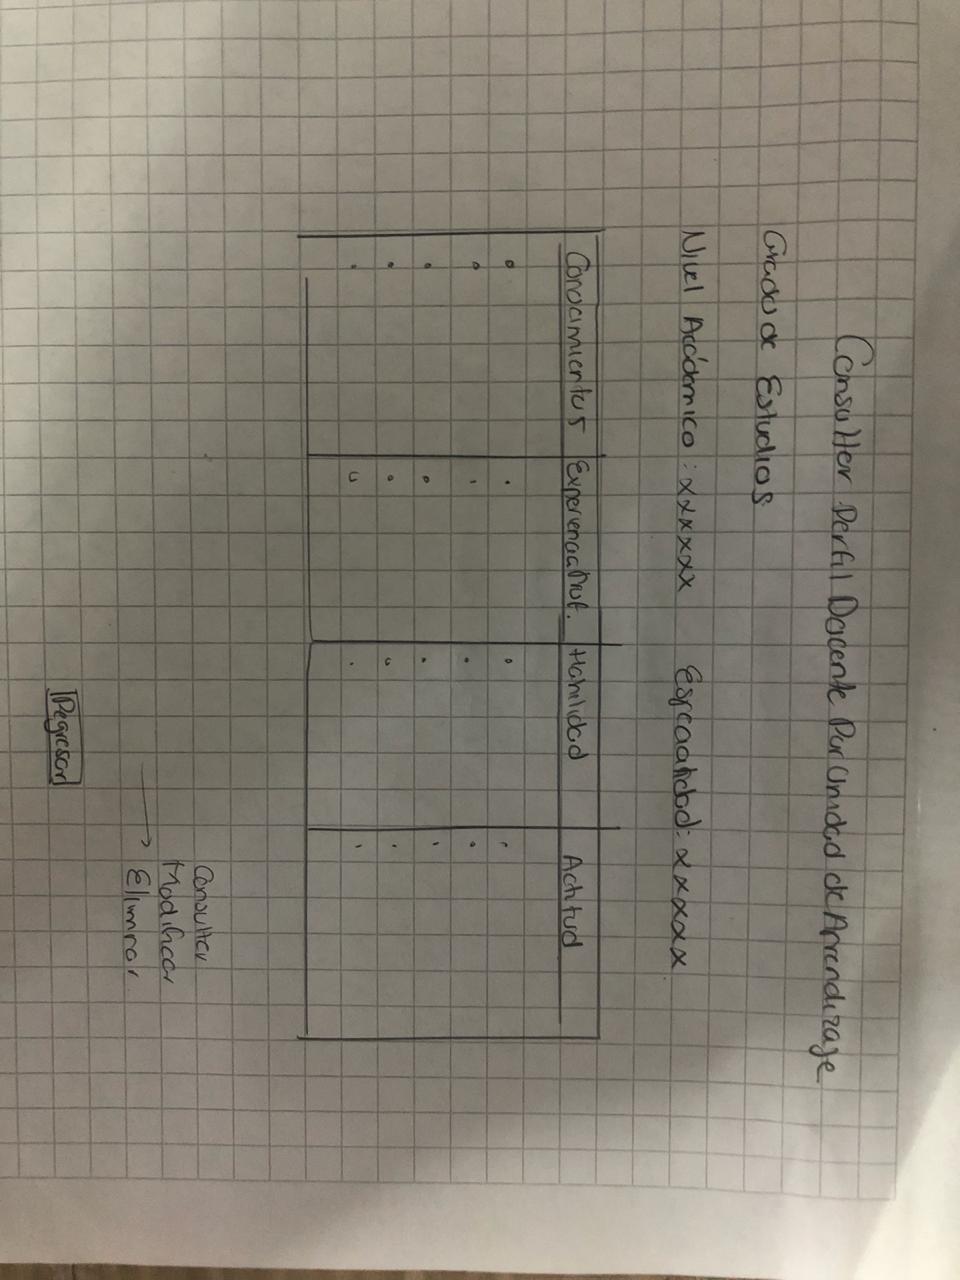 Consulter Perfil Docente Por Unidad de Aprendizaje
Grado de Estudios
Nivel Acádemico : xxxxx Especialidad: xxxxx
Conocimientos Experiencia Prof. Habilidad Actitud
Consulter
Modificar
→ Eliminar
Regresar